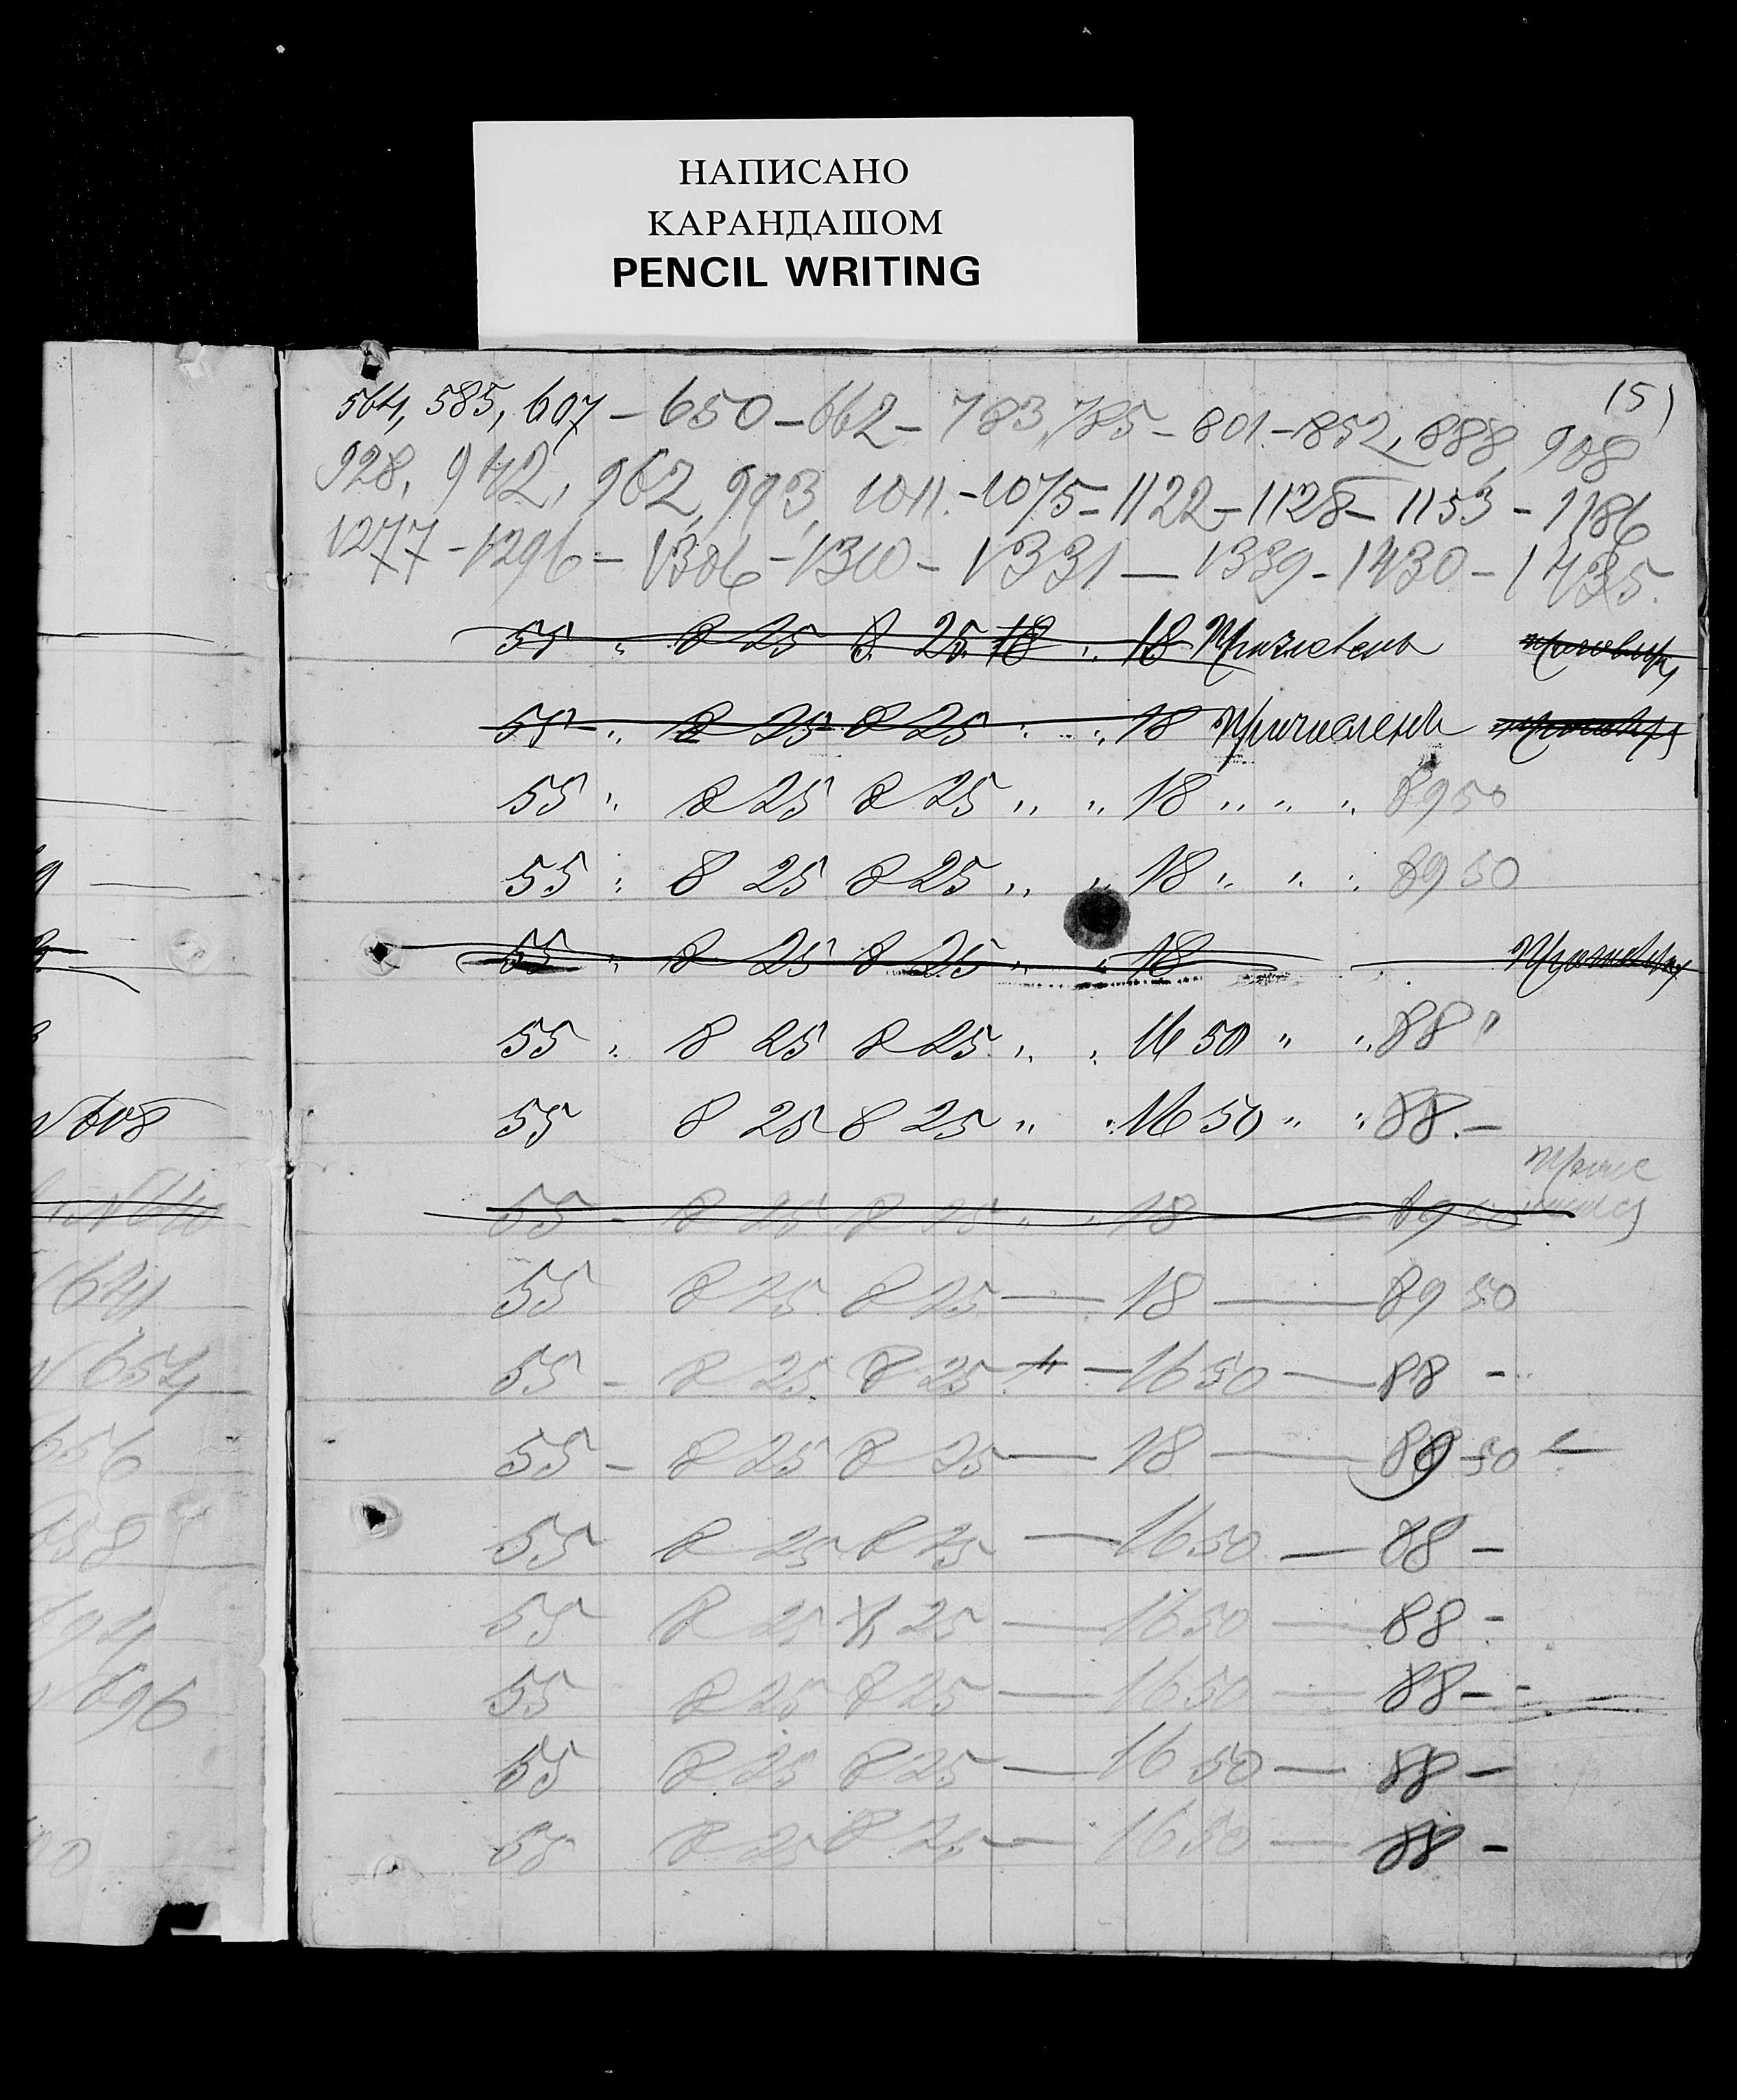 НАПИСАНО
КАРАНДАШОМ
PENCIL WRITING
15)
564, 585, 607 – 650 – 662 – 783, 785 – 801 – 852, 888, 908
928, 942, 962, 993, 1011 – 1075 – 1122 – 1128 – 1153 – 1186
1277 – 1296 – 1306 – 1310 – 1331 – 1339 – 1430 – 1435.
55 " 8 25 8 25 18 " 18
55 " 8 25 8 25 " " 18 Причисленъ
55 " 8 25 8 25 " " 18 " " " 89 50
55 " 8 25 8 25 " " 18 " " " 89 50
55 " 8 25 8 25 " " 18
55 " 8 25 8 25 " " 16 50 " " 88 "
№ 608 55 8 25 8 25 " " 16 50 " " 88 . –
55 – 8 25 8 25 " " 18 — 89 50
641 55 8 25 8 25 — 18 — 89 50
№ 654 55 – 8 25 8 25 — 16 50 — 88 –
656 55 – 8 25 8 25 — 18 — 89 50
658 55 8 25 8 25 — 16 50 — 88 –
694 55 8 25 8 25 — 16 50 — 88 –
№ 696 55 8 25 8 25 — 16 50 — 88 –
55 8 25 8 25 — 16 50 — 88 –
55 8 25 8 25 — 16 50 — 88 –